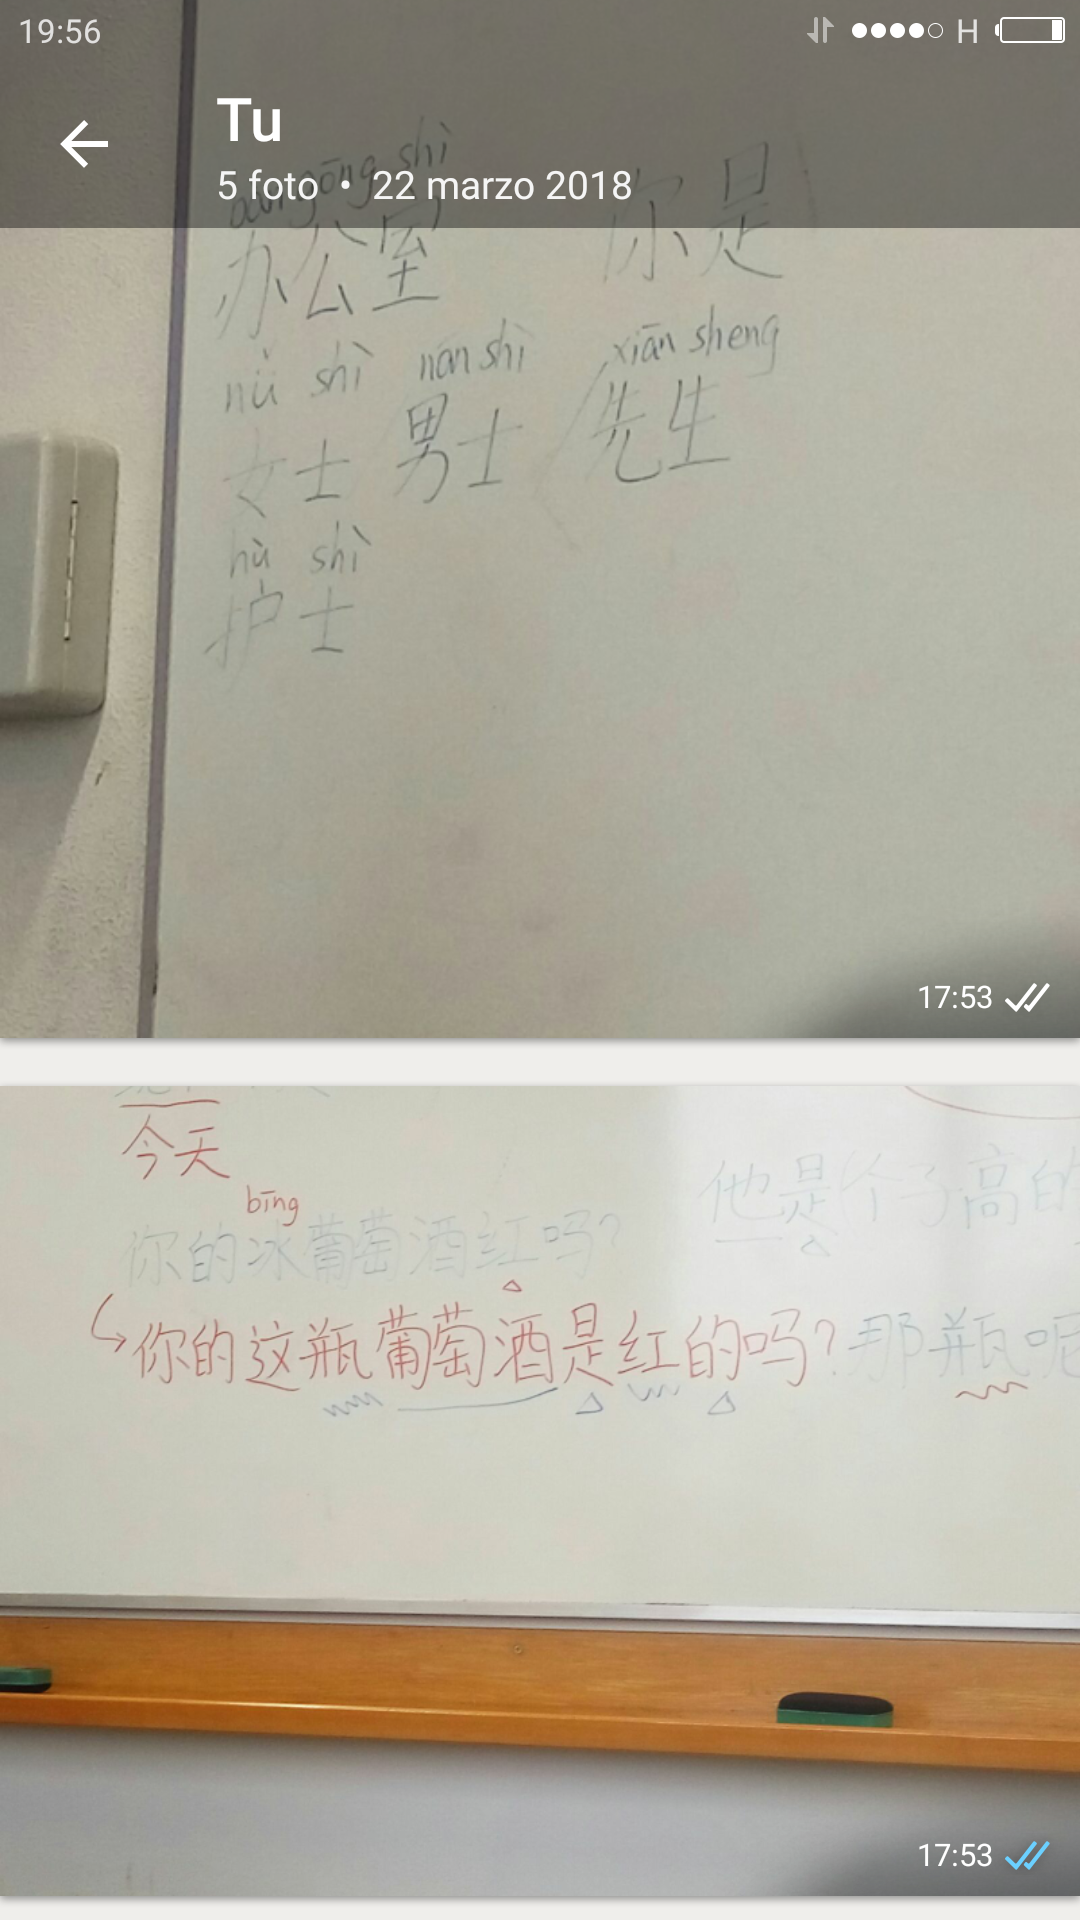 19:56 H
Tu
5 foto • 22 marzo 2018
bàngōng shì
办公室 你是
nǚ shì nán shì xiān sheng
女士 男士 先生
hù shì
护士
17:53
今天
bīng
你的冰葡萄酒红吗? 他是个子高的
你的这瓶葡萄酒是红的吗? 那瓶呢
17:53